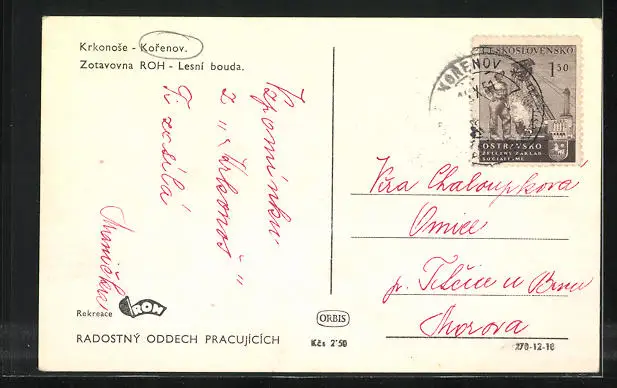 Krkonoše - Kořenov.
Zotavovna ROH - Lesní bouda.
Vzpomínku
z „Krkonoš"
Ti zasílá
Rekreace ROH
RADOSTNÝ ODDECH PRACUJÍCÍCH
ORBIS
Kčs 2'50
ČESKOSLOVENSKO
1,50
KOŘENOV
OSTRAVSKO
ZELEZNÝ ZÁKLAD
SOCIALISMU
Chaloupková
Omice
p. Tetčice u Brna
Morava
278-12-18